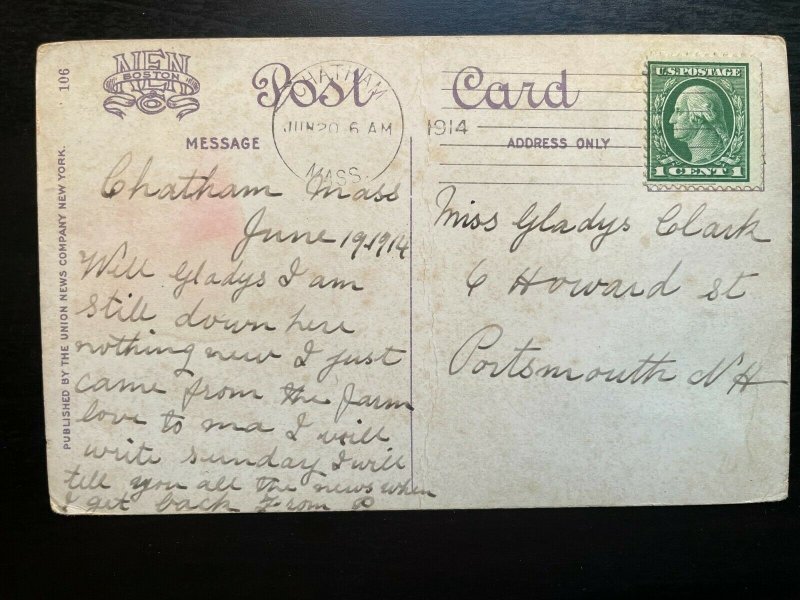 106
NEN
BOSTON
Co
Post Card
CHATHAM
JUN 20 6 AM
MASS.
1914
U.S. POSTAGE
1 CENT 1
MESSAGE
ADDRESS ONLY
PUBLISHED BY THE UNION NEWS COMPANY NEW YORK.
Chatham Mass
June 19, 1914
Will Gladys I am
still down here
nothing new I just
came from the farm
love to ma I will
write sunday I will
tell you all the news when
I get back From
Miss Gladys Clark
6 Howard st
Portsmouth N H